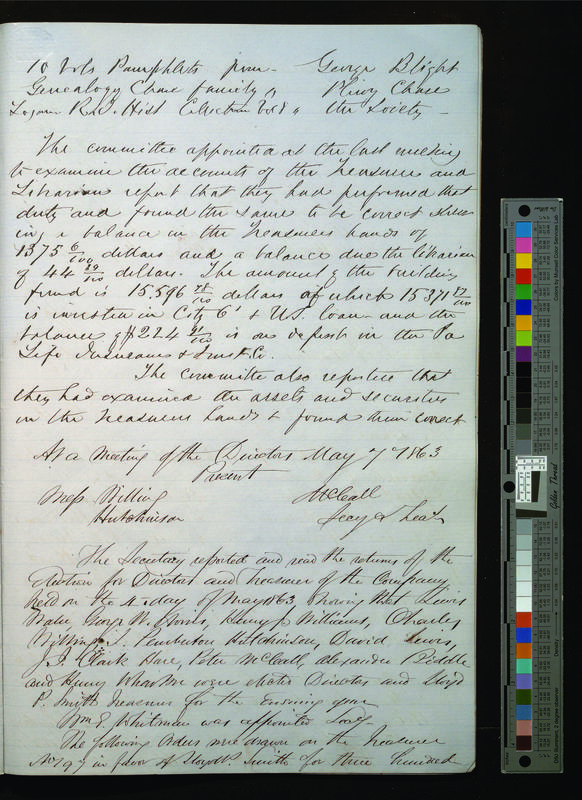 10 Vols Pamphlets from George Blight
Genealogy Chase family " Pliny Chase
Hist Collection Vol " the Society
The committee appointed at the last meeting
to examine the accounts of the Treasurer and
Librarian report that they had performed that
duty and found the same to be correct show
ing a balance in the Treasurers hands of
1375 6/100 dollars and a balance due the librarian
of 44 29/100 dollars. The amount of the building
fund is 15.596 78/100 dollars of which 15371 87/100
is invested in City 6s & U.S. loan and the
balance of $224 91/100 is on deposit in the Pa
Life Insurance & Trust Co.
The committee also reported that
they had examined the assets and securities
in the Treasurers hands & found them correct
At a Meeting of the Directors May 7 1863
Present
Mess Willing McCall
Hutchinson Secy &
The Secretary reported and read the returns of the
Election for Directors and Treasurer of the Company
held on the 4 day of May 1863, showing that Lewis
Waln George W. Norris, Henry J. Williams, Charles
Willing, J. Pemberton Hutchinson, David Lewis,
J. I. Clark Hare, Peter McCall, Alexander Biddle
and Henry Wharton were elected Directors and Lloyd
P. Smith Treasurer for the ensuing year
Wm E. Whitman was appointed Secy
The following Orders were drawn on the Treasurer
in favor of Lloyd P. Smith for three hundred